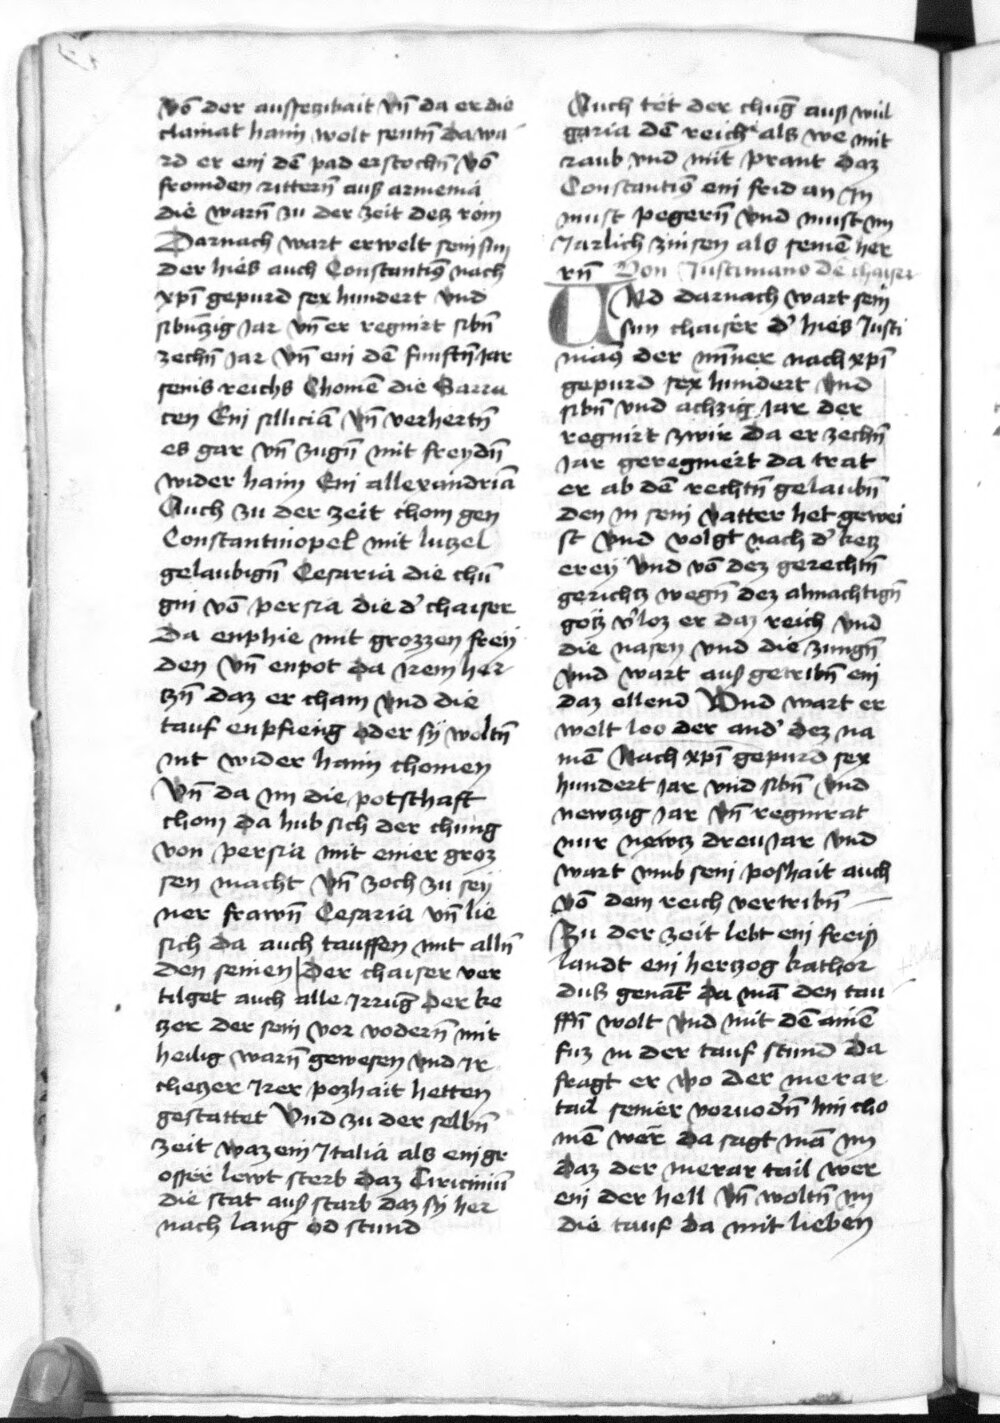 vō der aussetzikait vn̄ da er die
clainat haim wolt sentn̄ da wa
rd er ein dē pad erstochn̄ vō
fromden rittern̄ auß armenia
die warn̄ zu der zeit dez röm
Darnach wart erwelt sein sun
der hies auch Constantin9 nach
xpī gepurd sex hundert vnd
sibn̄zig Jar vn̄ er regnirt sibn̄
zechn̄ Jar vn̄ ein dē funftn̄ Jar
seins reichs Chomē die Sarra
cen Ein silliciā vn̄ verhertn̄
es gar vn̄ zugn̄ mit freydn̄
wider haim Ein allexandriā
Auch zu der zeit chom gen
Constantinopel mit lutzel
gelaubign̄ Cesaria die chu
gin vō persia die d' chaiser
da enphie mit grozzen frey
den vn̄ enpot da irem her
tzn̄ daz er cham vnd die
tauf enpfieng oder sy woltn̄
nit wider haim chomen
Vn̄ da im die potschaft
chom da hub sich der chung
von persia mit einer groz
sen macht vn̄ zoch zu sey
ner frawn̄ Cesaria vn̄ lie
sich da auch tauffen mit alln̄
den seinen der chaiser ver
tilget auch alle Irruḡ der ke
tzer der sein vor vodern̄ mit
heilig warn̄ gewesen vnd Ir
chetzer Irer pozhait hetten
gestattet Vnd zu der selbn̄
zeit waz ein Italia als ein gr
osser lewt sterb daz Ticiniū
die stat auß starb daz sy her
nach lang od stund
Auch tet der chuḡ auß wul
garia dē reich als we mit
raub vnd mit prant daz
Constantin9 ein frid an Im
must pegern̄ vnd must im
Jarlich zinsen als seinē her
rn̄ Von Justiniano dē chaiser
Und darnach wart sein
sun chaiser d' hies Justi
nia9 der mīner nach xpī
gepurd sex hundert vnd
sibn̄ vnd achzig Jar der
regnirt zwir da er zechn̄
Jar geregniert da trat
er ab dē rechtn̄ gelaubn̄
den in sein vatter het gewei
st vnd volgt nach d' ketz
erey vnd vō dez gerechtn̄
gerichtz wegn̄ dez almachtign̄
gotz v'loz er daz reich vnd
die nasen vnd die zungn̄
vnd wart auß getribn̄ ein
daz ellend Vnd wart er
welt leo der and' dez na
mē Nach xpī gepurd sex
hundert Jar vnd sibn̄ vnd
newtzig Jar vn̄ regnirat
nur newtz dreu Jar vnd
wart vmb sein poshait auch
vō dem reich vertribn̄
Zu der zeit lebt ein freiß
landt ein hertzog kathol
duß genāt da mā den tau
ffn̄ wolt vnd mit dē ainē
fuz in der tauf stund da
fragt er wo der merar
tail seiner voruod'n̄ hin cho
mē wer da sagt mā im
daz der merar tail wer
ein der hell vn̄ woltn̄ im
die tauf da mit lieben